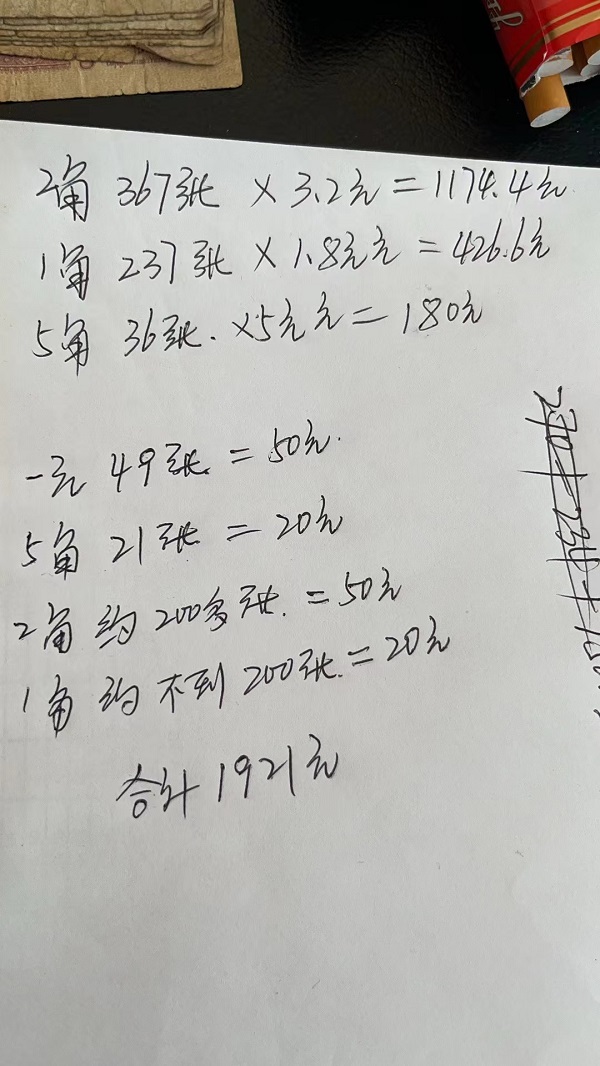 2角 367张 × 3.2元 = 1174.4元
1角 237张 × 1.8元元 = 426.6元
5角 36张. ×5元元 = 180元
一元 49张. = 50元.
5角 21张 = 20元
2角 约 200多张. = 50元
1角 约 不到 200张. = 20元
合计 1921元